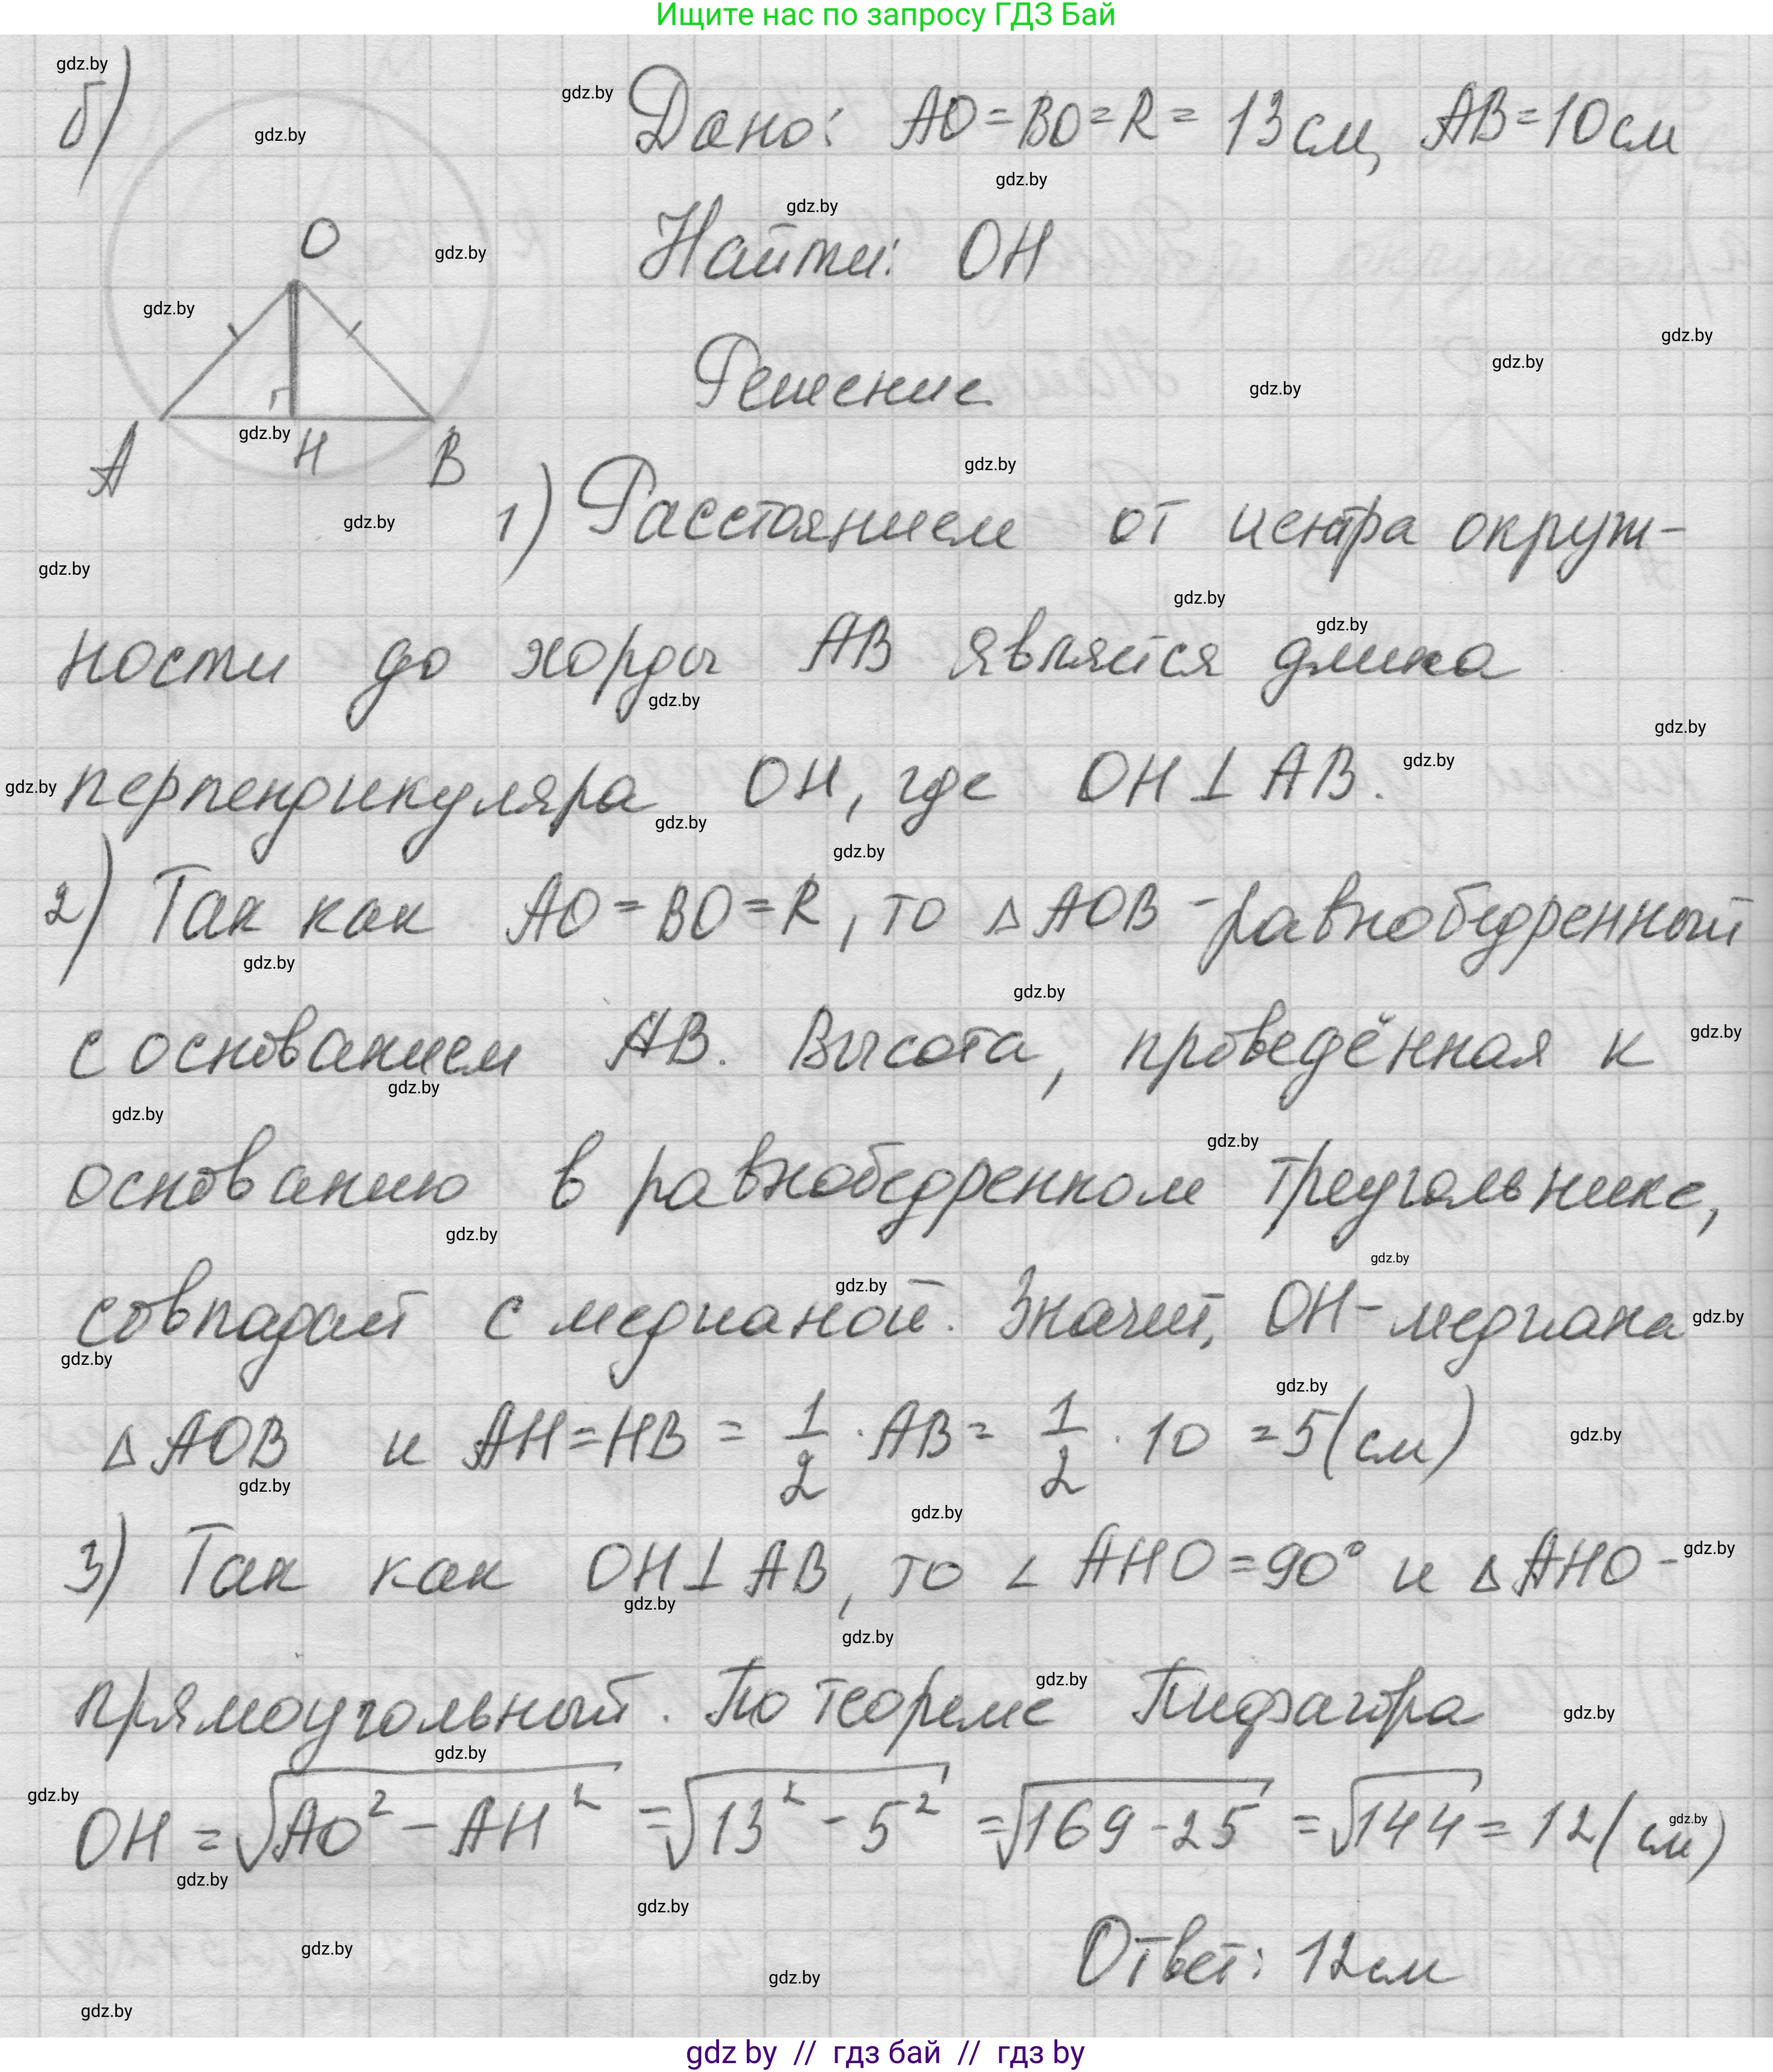 Ищите нас по запросу ГДЗ Бай
б)
Дано: AO=BO=R=13см, AB=10см
Найти: OH
O
A H B
Решение
1) Расстоянием от центра окруж-
ности до хорды AB является длина
перпендикуляра OH, где OH⊥AB.
2) Так как AO=BO=R, то ΔAOB - равнобедренный
с основанием AB. Высота, проведённая к
основанию в равнобедренном треугольнике,
совпадает с медианой. Значит, OH - медиана
ΔAOB и AH=HB=1/2·AB=1/2·10=5(см)
3) Так как OH⊥AB, то ∠AHO=90° и ΔAHO-
прямоугольный. По теореме Пифагора
OH=√(AO²-AH²)=√(13²-5²)=√(169-25)=√144=12(см)
Ответ: 12см
gdz by // гдз бай // гдз by